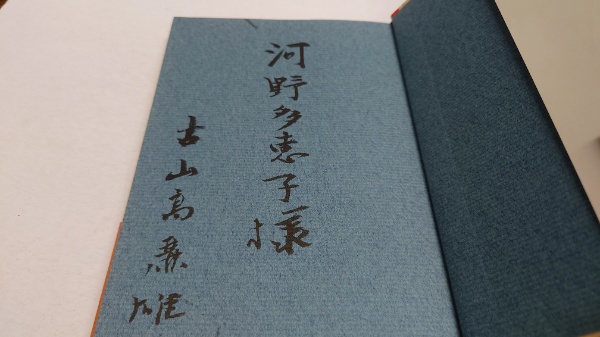 河野多恵子様
古山高麗雄